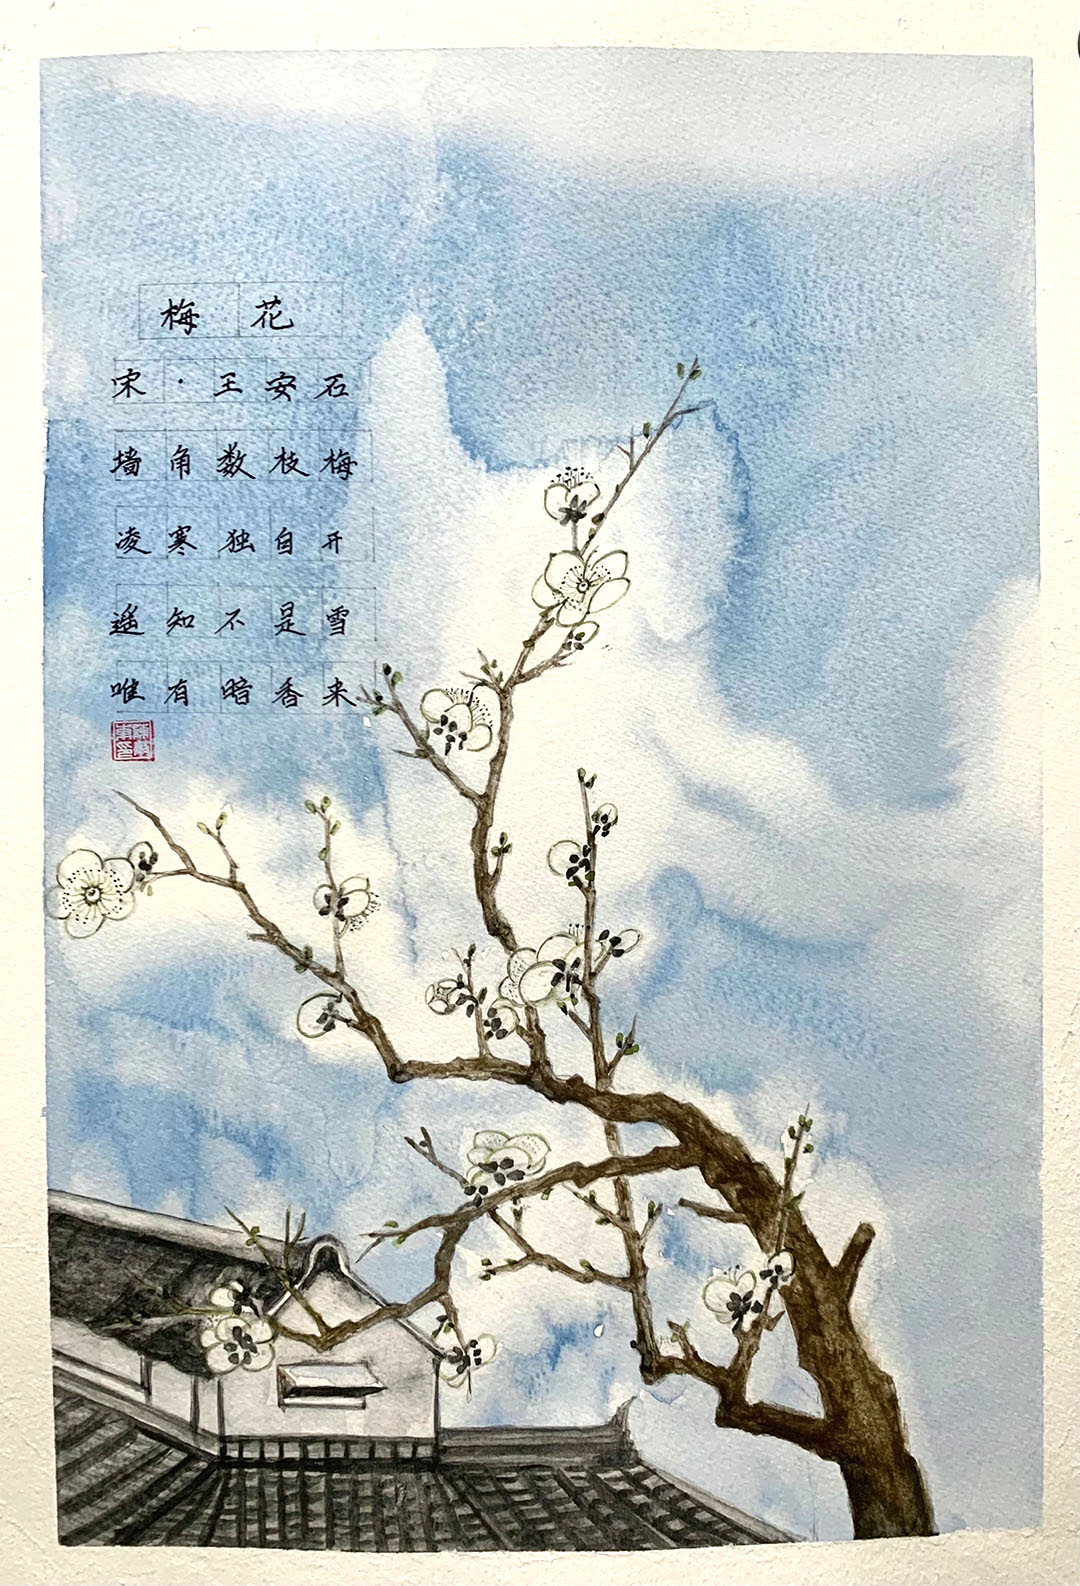 梅花
宋·王安石
墙角数枝梅
凌寒独自开
遥知不是雪
唯有暗香来